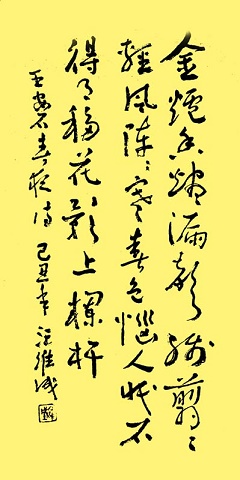 金爐香燼漏聲殘翦〻
輕風陣〻寒春色惱人眠不
得月移花影上欄杆
王安石春夜詩 己丑年